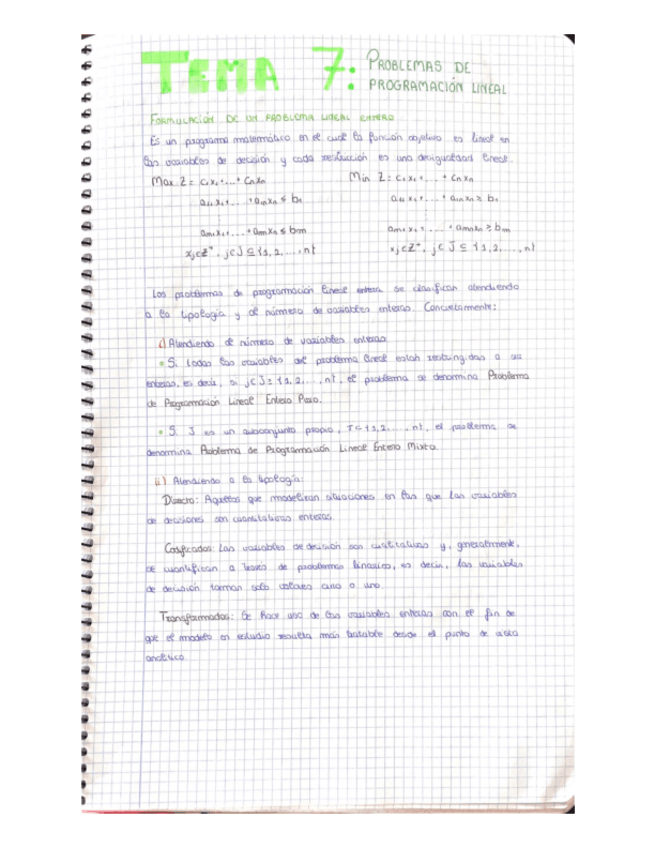 TEMA 7: PROBLEMAS DE
PROGRAMACIÓN LINEAL
FORMULACIÓN DE UN PROBLEMA LINEAL ENTERO
Es un programa matemático en el cual la función objetivo es lineal en
las variables de decisión y cada restricción es una desigualdad lineal.
Max Z = c₁x₁+...+ cnxn
Min Z = c₁x₁+...+ cnxn
a₁₁x₁+...+a₁nxn ≤ b₁
a₁₁x₁+...+a₁nxn ≥ b₁
⋮
⋮
am₁x₁+...+amnxn ≤ bm
am₁x₁+...+amnxn ≥ bm
xj∈Z⁺, j∈J ⊆ {1,2,...,n}
xj∈Z⁺, j∈J ⊆ {1,2,...,n}
Los problemas de programación lineal entera se clasifican atendiendo
a la tipología y al número de variables enteras. Concretamente:
i) Atendiendo al número de variables enteras
• Si todas las variables del problema lineal están restringidas a ser
enteras, es decir, si j∈J={1,2,...,n}, el problema se denomina Problema
de Programación Lineal Entero Puro.
• Si J es un subconjunto propio, J⊂{1,2,...,n}, el problema se
denomina Problema de Programación Lineal Entero Mixto.
ii) Atendiendo a la tipología:
Directo: Aquellos que modelizan situaciones en las que las variables
de decisiones son cuantitativas enteras.
Codificados: Las variables de decisión son cualitativas y, generalmente,
se cuantifican a través de problemas binarios, es decir, las variables
de decisión toman solo valores cero o uno.
Transformados: Se hace uso de las variables enteras con el fin de
que el modelo en estudio resulta más tratable desde el punto de vista
analítico.